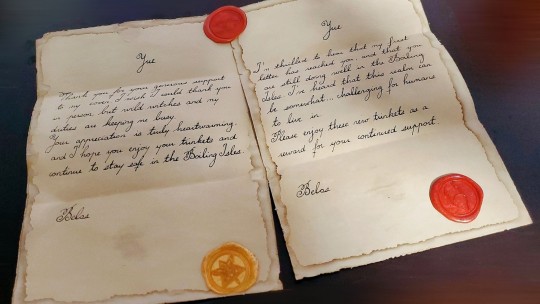 Yue
Thank you for your generous support
to my coven. I wish I could thank you
in person, but wild witches and my
duties are keeping me busy.
Your appreciation is truly heartwarming,
and I hope you enjoy your trinkets and
continue to stay safe in the Boiling Isles.
Belos
Yue
I'm thrilled to hear that my first
letter has reached you, and that you
are still doing well in the Boiling
Isles. I've heard that this realm can
be somewhat... challenging for humans
to live in.
Please enjoy these new trinkets as a
reward for your continued support.
Belos